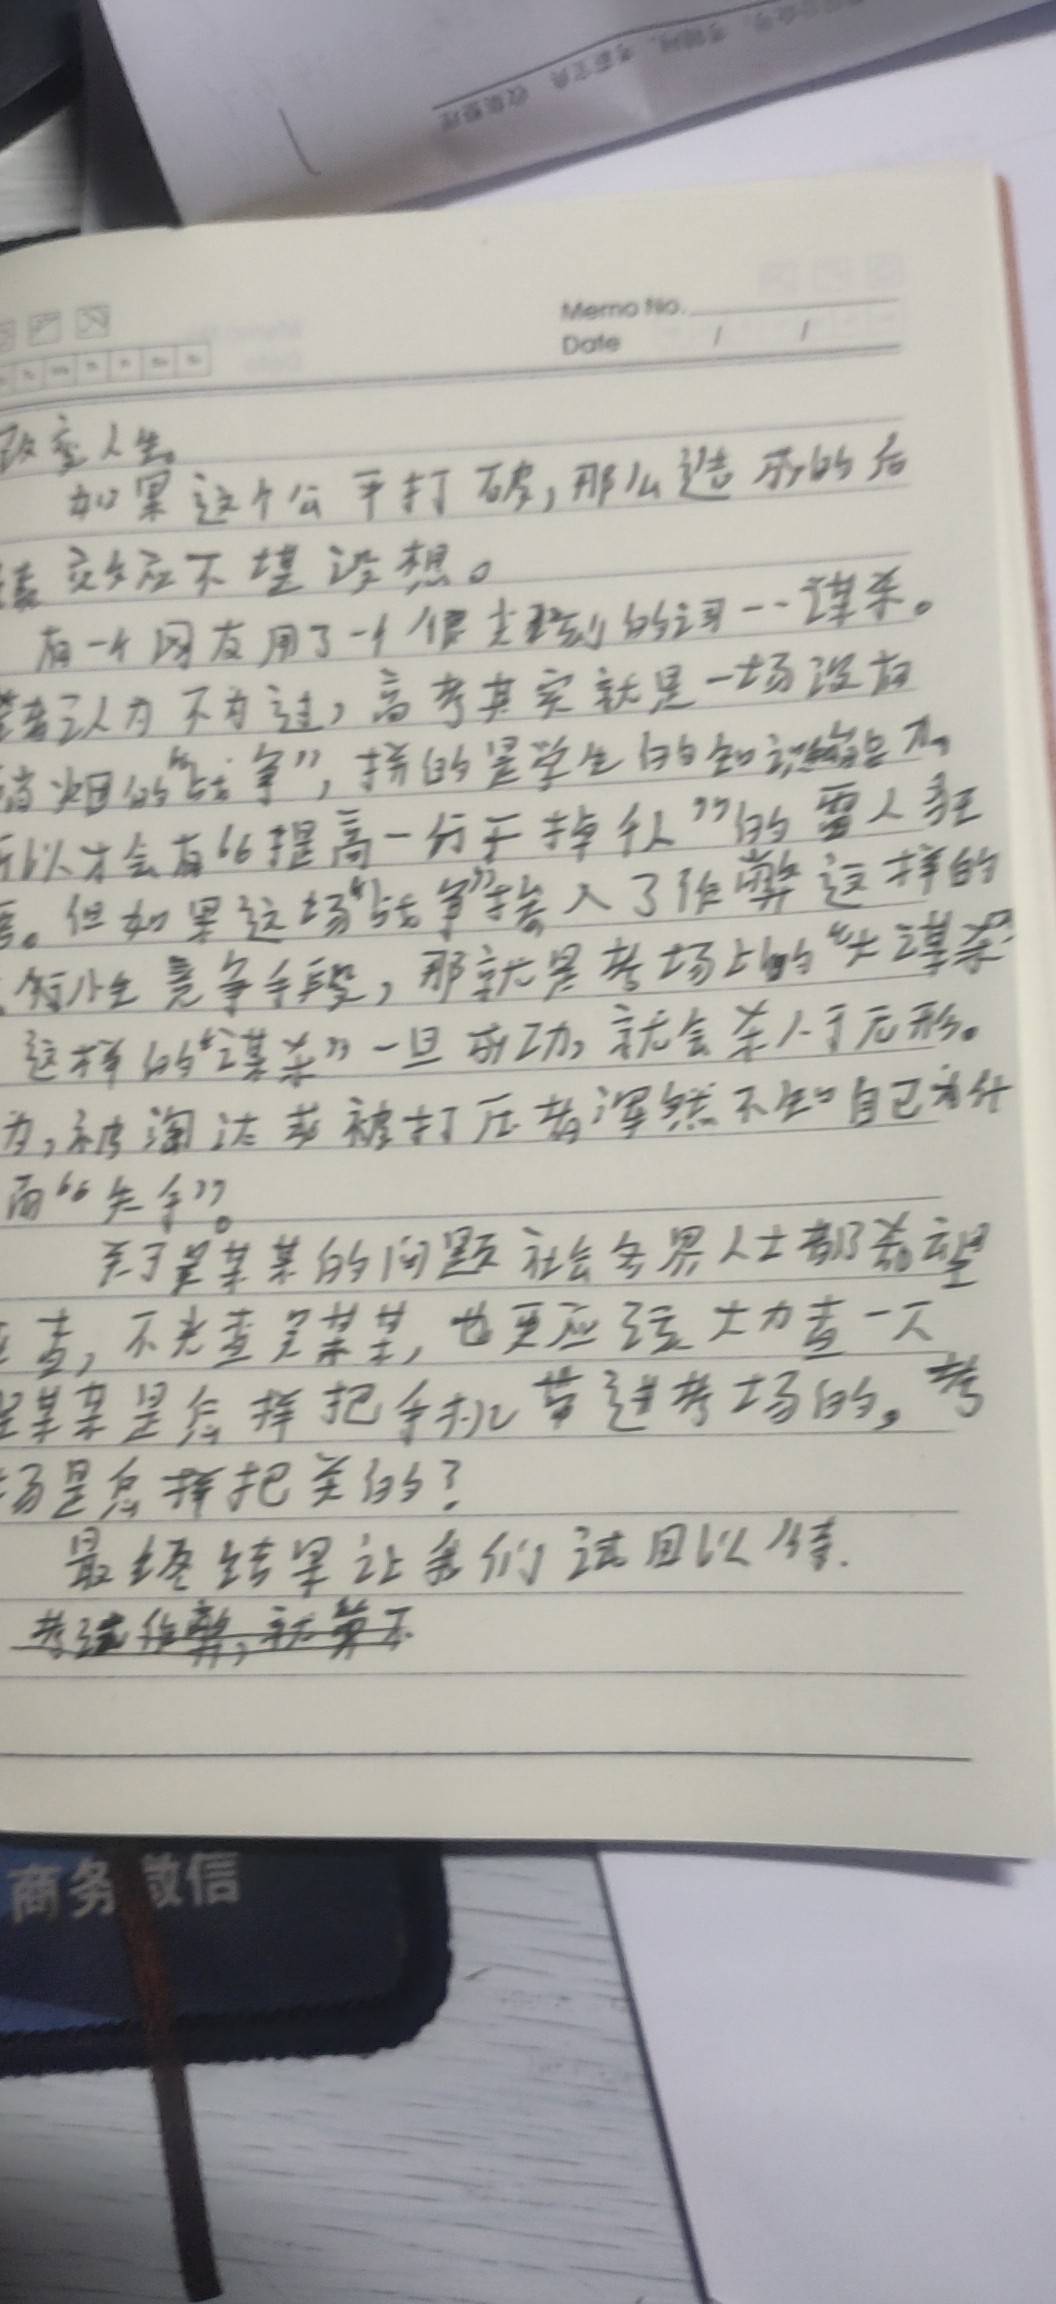 Memo No.
Date / /
改变人生。
如果这个公平打破,那么造成的后
效应不堪设想。
有一个网友用了一个很尖锐的词--谋杀。
笔者认为不为过,高考其实就是一场没有
硝烟的“战争”,拼的是学生的知识能力。
所以才会有“提高一分干掉千人”的雷人狂
语。但如果这场“战争”掺入了作弊这样的
竞争手段,那就是考场上的“大谋杀
这样的“谋杀”一旦成功,就会杀人于无形。
为,被淘汰或被打压者浑然不知自己为什
而“失手”。
关于吴某某的问题社会各界人士都希望
查,不光查吴某某,也更应该大力查一下
吴某某是怎样把手机带进考场的。考
场是怎样把关的?
最终结果让我们拭目以待.
考试作弊,就算不
商务微信